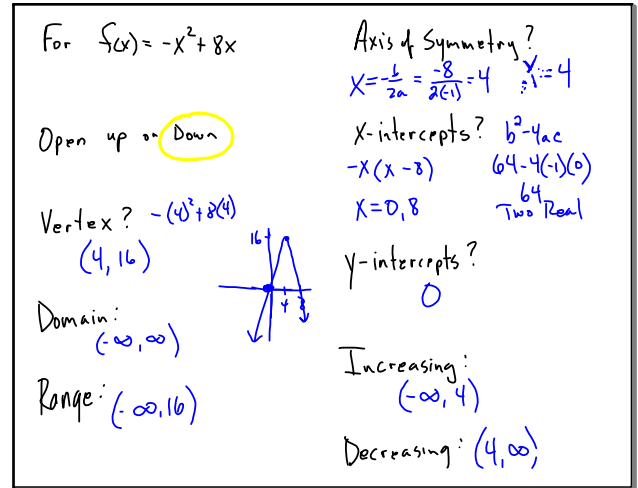 For f(x) = -x² + 8x
Open up or Down
Vertex? -(4)² + 8(4)
(4, 16)
16
4 8
Domain:
(-∞, ∞)
Range: (-∞, 16)
Axis of Symmetry?
x = -b/2a = -8/2(-1) = 4 ∴ x = 4
x-intercepts? b² - 4ac
-x(x - 8) 64 - 4(-1)(0)
64
x = 0, 8 Two Real
y-intercepts?
0
Increasing:
(-∞, 4)
Decreasing: (4, ∞)